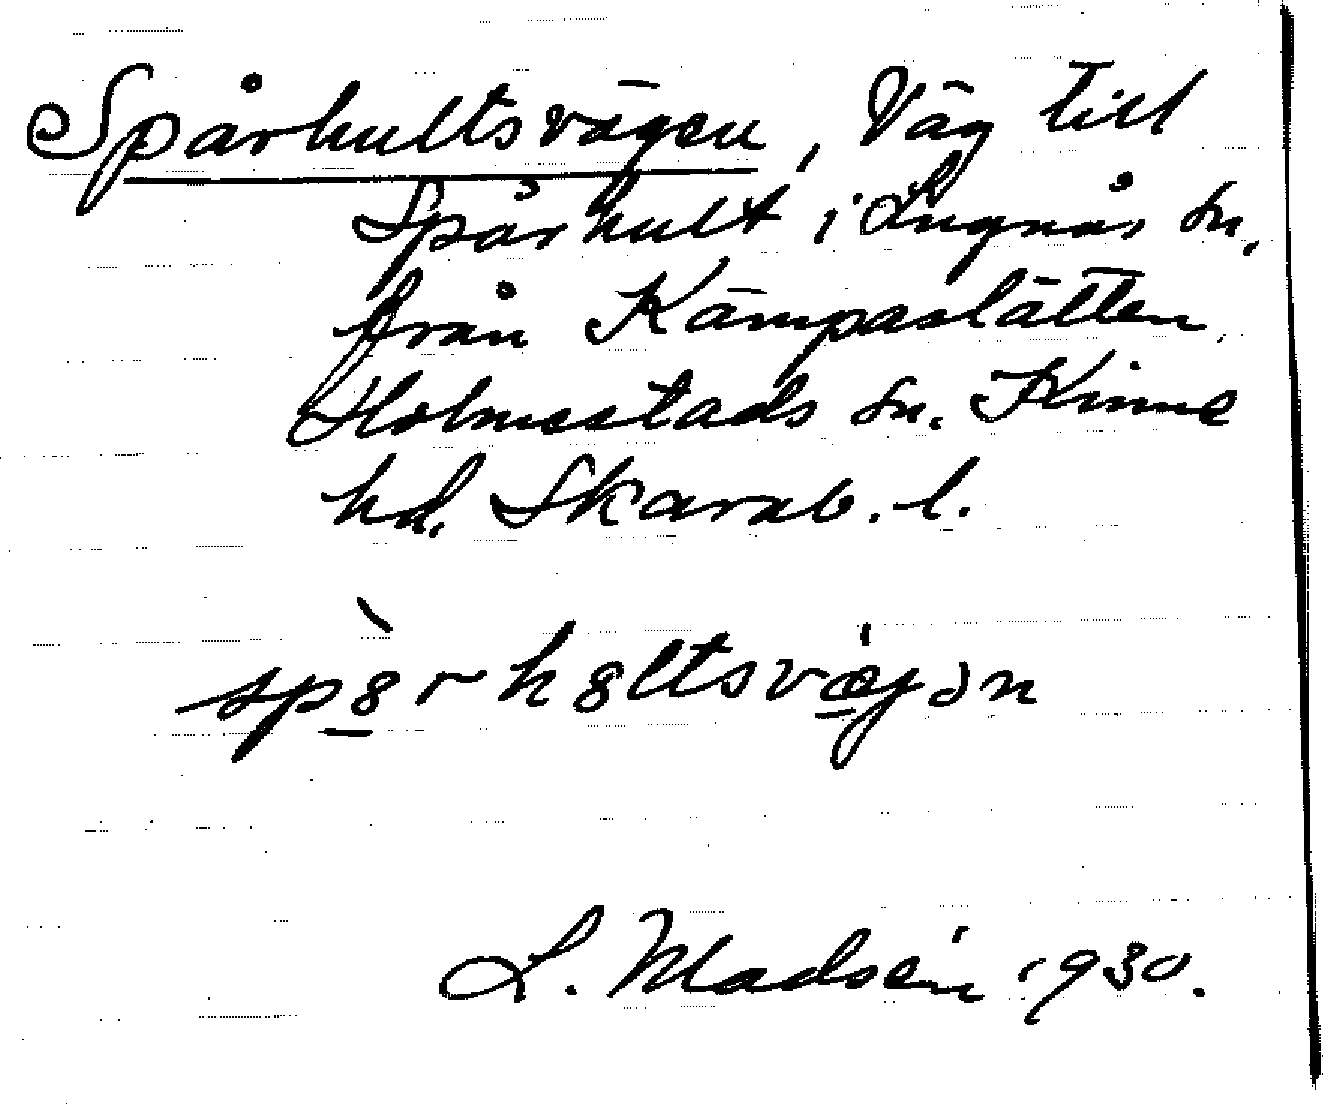 Spårhultsvägen, Väg till
Spårhult i Lugnås sn.
från Kämpaslätten
Holmestads sn. Kinne
hd. Skarab. l.
sp8̠̀rh8ltsvǽ̠jən
L. Madsén 1930.